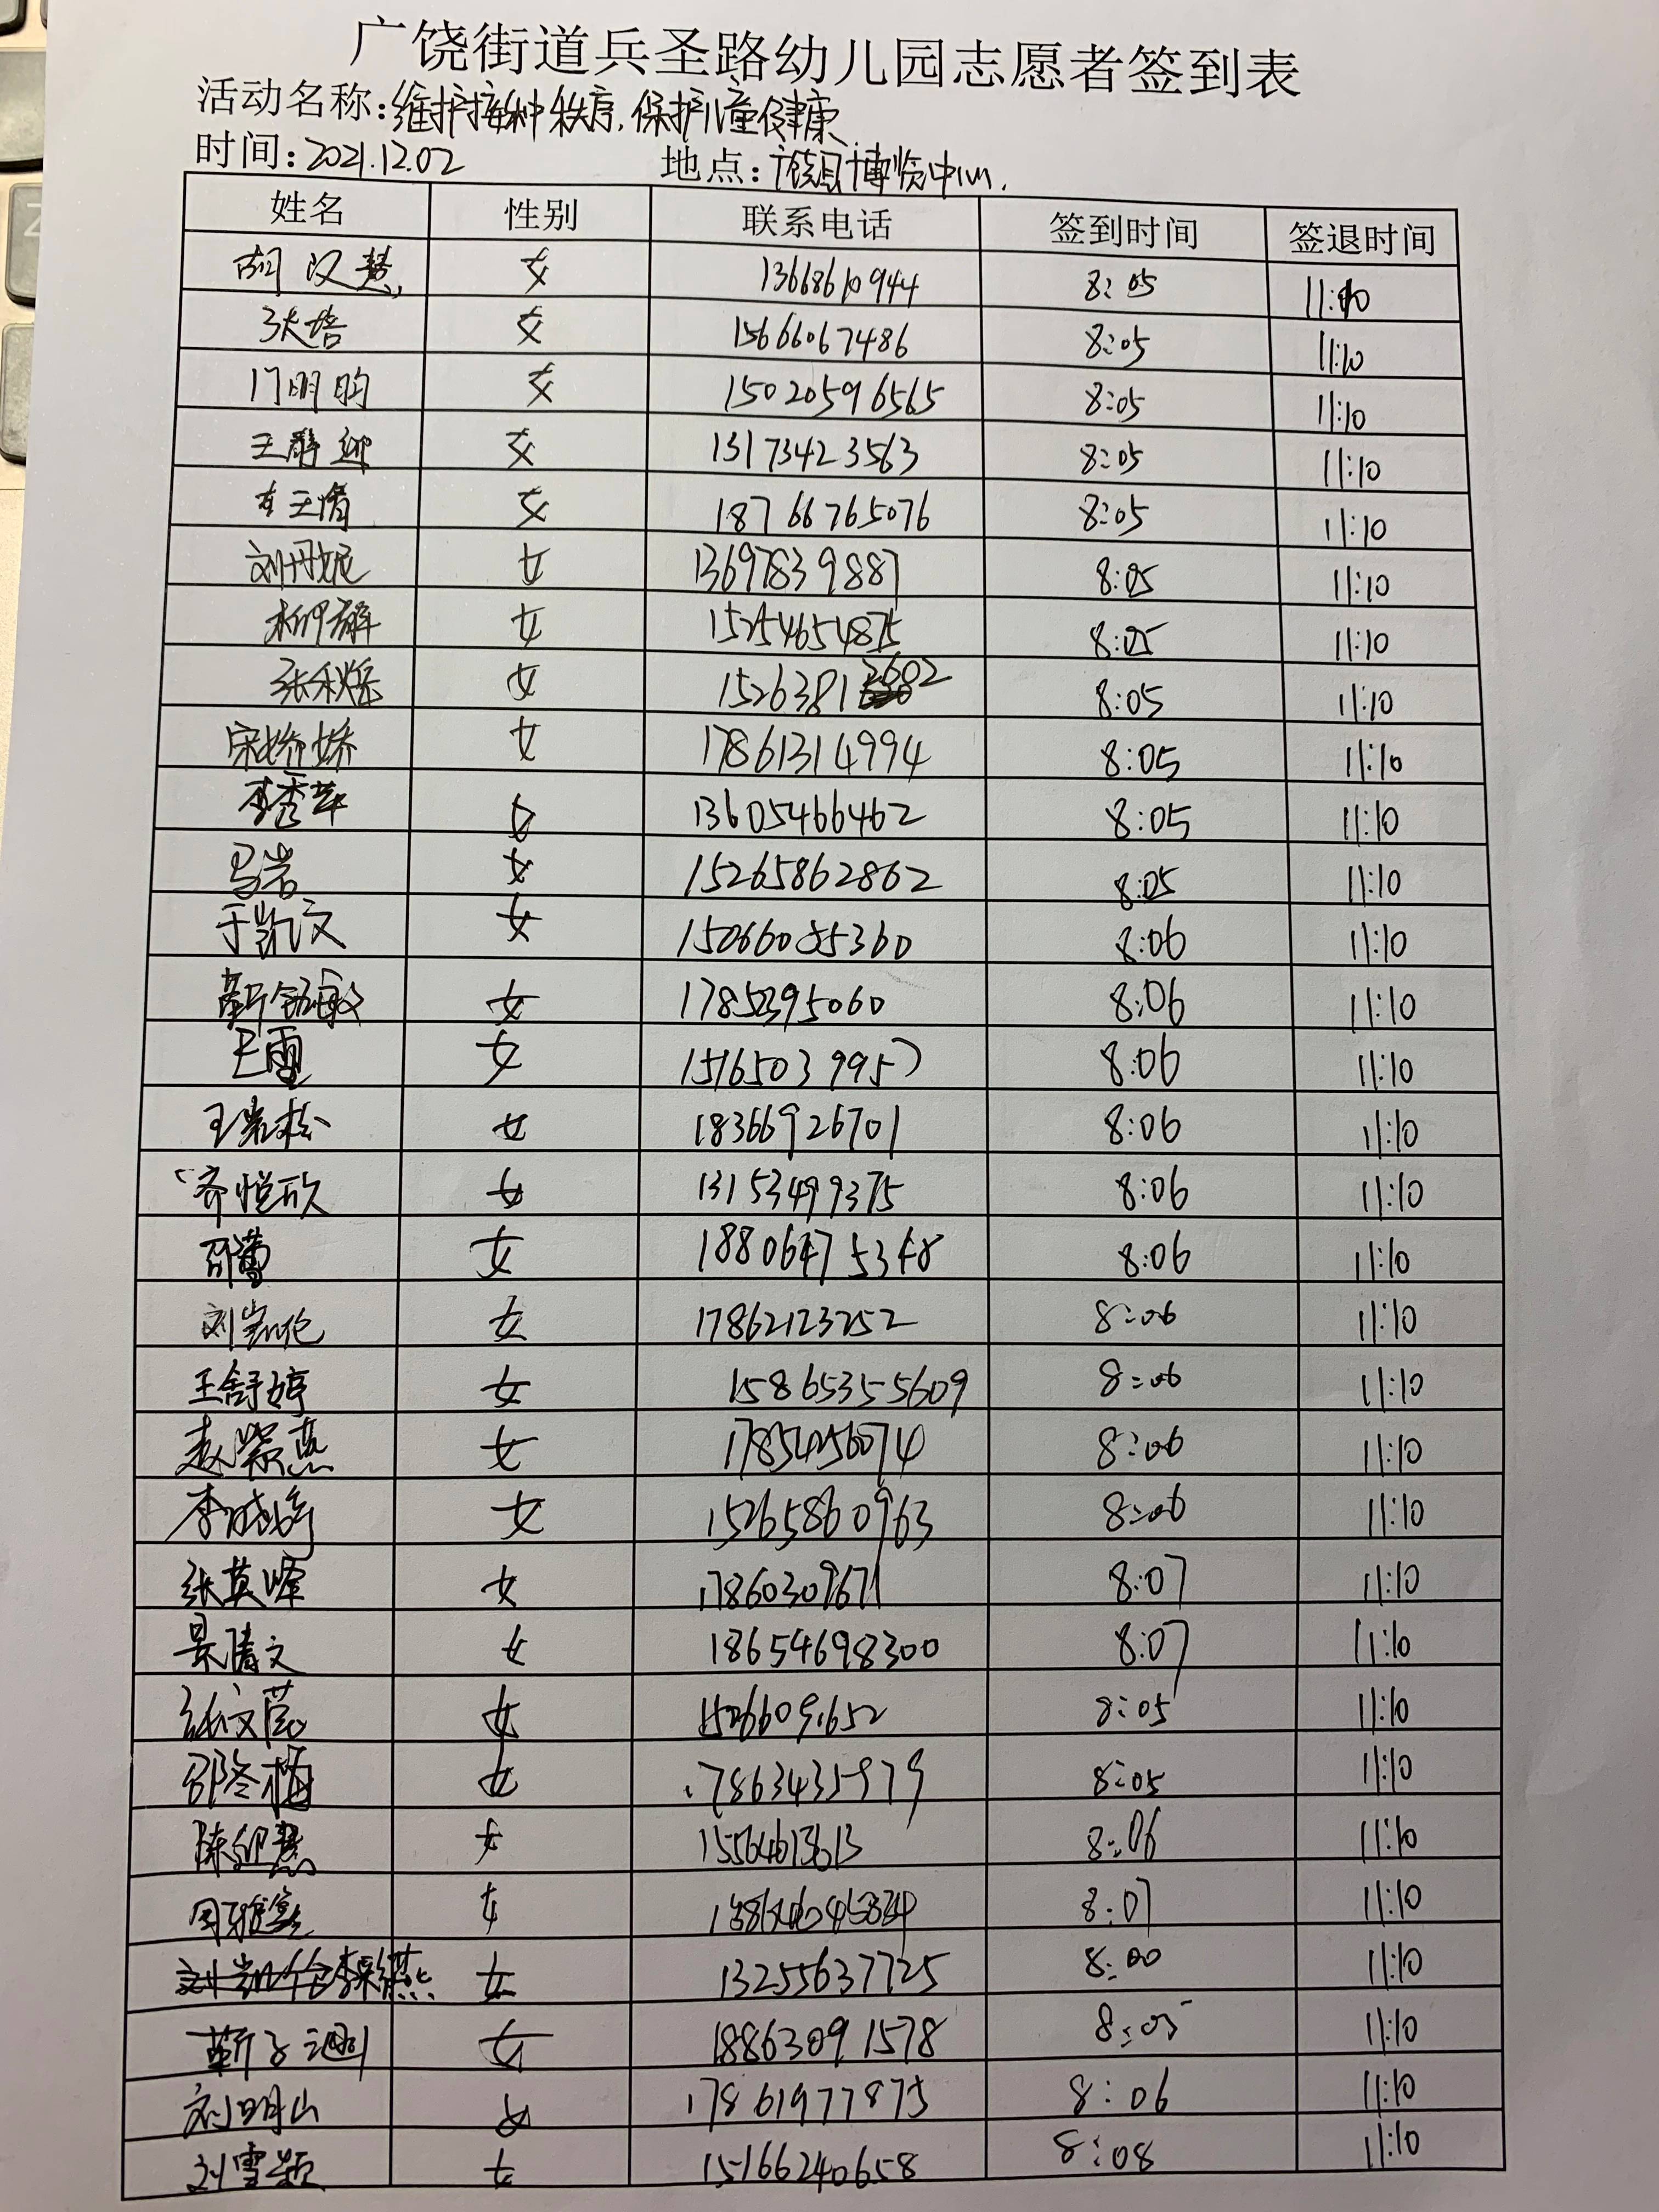 广饶街道兵圣路幼儿园志愿者签到表
活动名称:维护接种秩序,保护儿童健康
时间:2021.12.02 地点:广饶县博览中心.
姓名 性别 联系电话 签到时间 签退时间
胡汉慧 女 13668610944 8:05 11:10
张培 女 15666067486 8:05 11:10
门明昀 女 15020596565 8:05 11:10
王 迎 女 13173423563 8:05 11:10
王倩 女 18766765076 8:05 11:10
刘丹妮 女 13697839887 8:05 11:10
柳 女 15254654875 8:05 11:10
张秋熠 女 15263812602 8:05 11:10
宋娇娇 女 17861314994 8:05 11:10
李秀苹 女 13605466462 8:05 11:10
马岩 女 15265862862 8:05 11:10
于凯文 女 15066085360 8:06 11:10
靳钰敏 女 8:06 11:10
王雪 女 15165039957 8:06 11:10
王岩松 女 18366926701 8:06 11:10
齐悦欣 女 13153499375 8:06 11:10
邵蕾 女 18806475348 8:06 11:10
刘凯伦 女 17862123252 8:06 11:10
王舒婷 女 15865355609 8:06 11:10
赵紫燕 女 17854256074 8:06 11:10
李晓婷 女 15265860963 8:06 11:10
张英峰 女 17860309671 8:07 11:10
景倩文 女 18654698300 8:07 11:10
张文苑 女 8:05 11:10
邵冬梅 女 17863435979 8:05 11:10
陈迎慧 女 8:06 11:10
周雅 女 8:07 11:10
刘凯伦 李彩燕 女 13255637725 8:00 11:10
靳子 女 18863091578 8:05 11:10
刘明山 女 17861977875 8:06 11:10
刘雪颖 女 15166240658 8:08 11:10